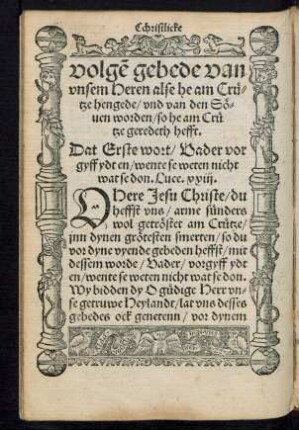 Christlicke
volgē gebede van
vnsem Heren alse he am Crü-
tze hengede / vnd van den Sö-
uen worden / so he am Crü
tze geredeth hefft.
Dat Erste wort / Vader vor
gyff ydt en / wente se weten nicht
wat se don. Luce. xxiij.
O Here Jesu Christe / du
heffst vns / arme sünders
wol getröstet am Crütze /
jnn dynen grötesten smerten / so du
vor dyne vyende gebeden heffst / mit
dessem worde / Vader / vorgyff ydt
en / wente se weten nicht wat se don.
Wy bidden dy O güdige Herr vn-
se getruwe Heylandt / lat vns desses
gebedes ock geneten / vor dynem